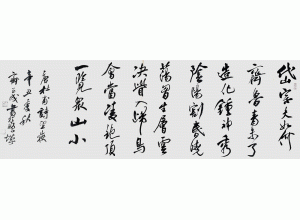 岱宗夫如何
齊魯青未了
造化鍾神秀
陰陽割昏曉
蕩胸生層雲
決眥入歸鳥
會當凌絕頂
一覽衆山小
唐杜甫詩望嶽
辛丑秋